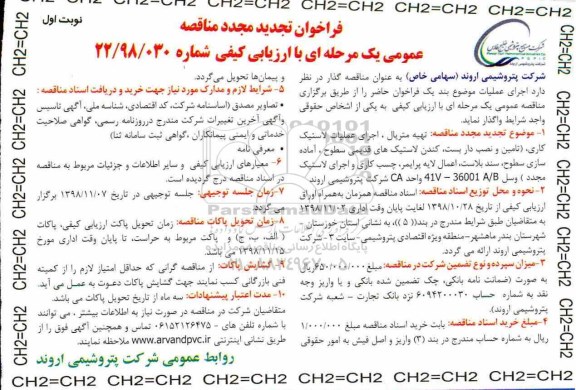 CH2=CH2 CH2=CH2 CH2=CH2 CH2=CH2 CH2=CH2
نوبت اول
فراخوان تجدید مجدد مناقصه
عمومی یک مرحله ای با ارزیابی کیفی شماره ۲۲/۹۸/۰۳۰
شرکت پتروشیمی اروند (سهامی خاص) به عنوان مناقصه گذار در نظر
دارد اجرای عملیات موضوع بند یک فراخوان حاضر را از طریق برگزاری
مناقصه عمومی یک مرحله ای با ارزیابی کیفی به یکی از اشخاص حقوقی
واجد شرایط واگذار نماید.
۱- موضوع تجدید مجدد مناقصه: تهیه متریال ، اجرای عملیات لاستیک
کاری، (تامین و نصب دار بست، کندن لاستیک های قدیمی سطوح ، آماده
سازی سطوح، سند بلاست، اعمال لایه پرایمر، چسب کاری و اجرای لاستیک
مجدد ) وسل 41V – 36001 A/B واحد CA شرکت پتروشیمی اروند
۲- نحوه و محل توزیع اسناد مناقصه: اسناد مناقصه همزمان به همراه اوراق
ارزیابی کیفی از تاریخ ۱۳۹۸/۱۰/۲۸ لغایت پایان وقت اداری
به متقاضیان طبق شرایط مندرج در بند(( ۵ ))، به نشانی استان خوزستان
شهرستان بندر ماهشهر- منطقه ویژه اقتصادی پتروشیمی- سایت شرکت
پتروشیمی اروند ارائه می گردد.
۳- میزان سپرده و نوع تضمین شرکت در مناقصه: مبلغ ریال
به صورت (ضمانت نامه بانکی، چک تضمین شده بانکی و یا واریز وجه
نقد به شماره حساب ۶۰۹۴۲۰۰۰۳۰ نزد بانک تجارت – شعبه شرکت
پتروشیمی اروند).
۴- مبلغ خرید اسناد مناقصه: بابت خرید اسناد مناقصه مبلغ ۱/۰۰۰/۰۰۰
ریال به شماره حساب مندرج در بند (۳) واریز و اصل فیش به امور حقوقی
و پیمانها تحویل می‌گردد.
۵- شرایط لازم و مدارک مورد نیاز جهت خرید و دریافت اسناد مناقصه :
• تصاویر مصدق (اساسنامه شرکت، کد اقتصادی، شناسه ملی، آگهی تاسیس
وآگهی آخرین تغییرات شرکت مندرج درروزنامه رسمی، گواهی صلاحیت
خدماتی و ایمنی پیمانکاری ،گواهی ثبت سامانه ثنا)
• معرفی نامه
۶- معیارهای ارزیابی کیفی و سایر اطلاعات و جزئیات مربوط به مناقصه
در اسناد مناقصه درج گردیده است.
۷- زمان جلسه توجیهی: جلسه توجیهی در تاریخ ۱۳۹۸/۱۱/۰۷ برگزار
می گردد.
۸- زمان تحویل پاکات: زمان تحویل پاکات ارزیابی کیفی، پاکات
( الف، ب، ج) و پاکت مربوط به حراست، تا پایان وقت اداری مورخ
می باشد.
۹- گشایش پاکات: از مناقصه گرانی که حداقل امتیاز لازم را از کمیته
فنی بازرگانی کسب نمایند جهت گشایش پاکات دعوت به عمل می آید.
۱۰- مدت اعتبار پیشنهادات: سه ماه از تاریخ تحویل پاکات می باشد.
متقاضیان شرکت در مناقصه در صورت نیاز به اطلاعات بیشتر ، می توانند
با شماره تلفن های ۰۶۱۵۲۱۲۶۴۷۵ - تماس و همچنین آگهی فوق را از
طریق نشانی اینترنتی www.arvandpvc.ir ملاحظه نمایند.
روابط عمومی شرکت پتروشیمی اروند
CH2=CH2 CH2=CH2 CH2=CH2